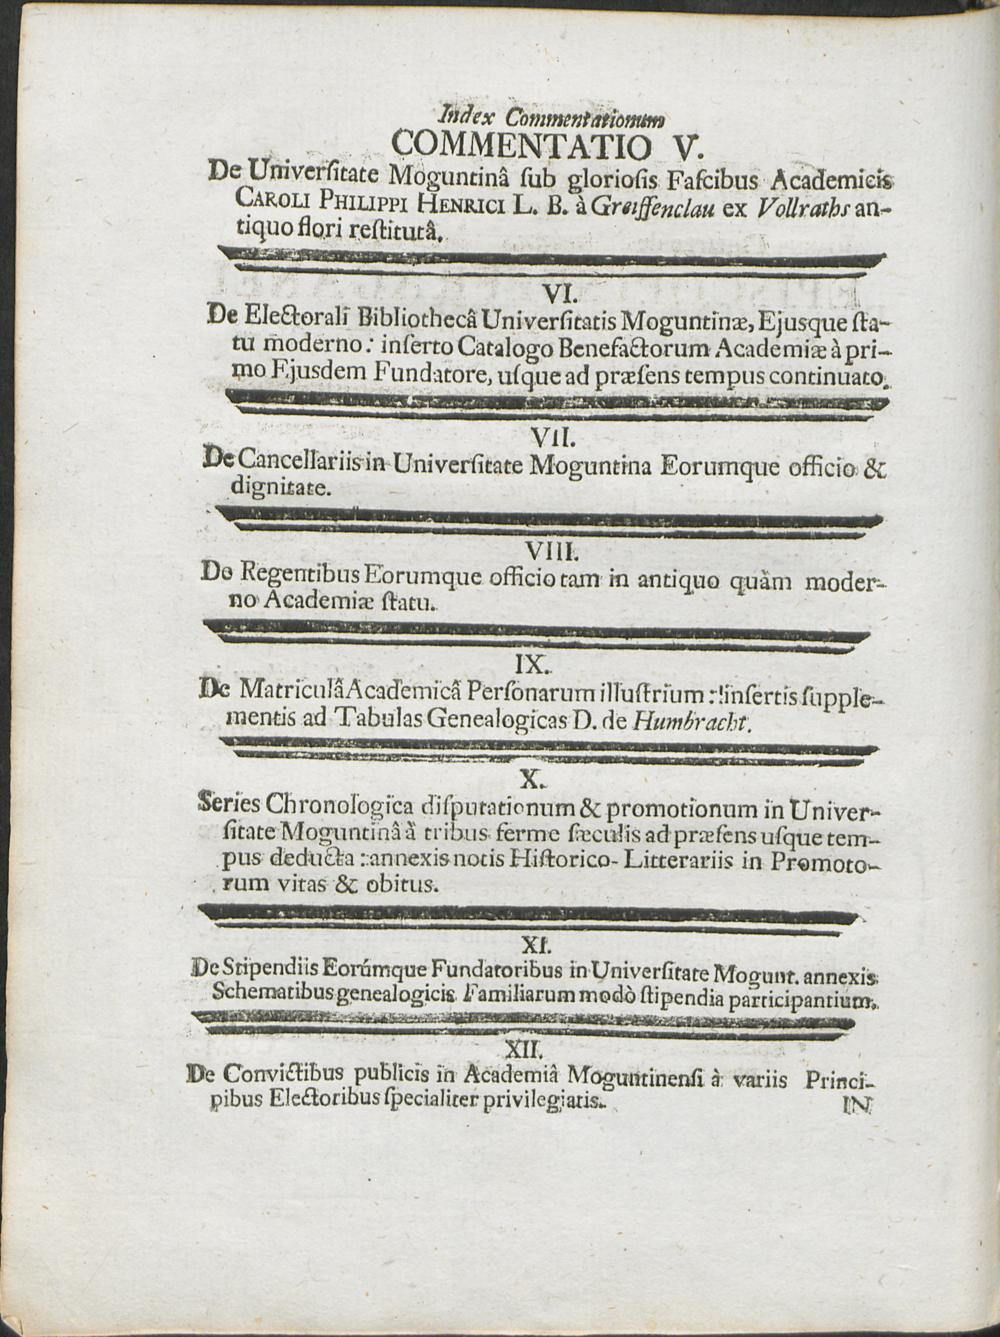 Index Commentationum
COMMENTATIO V.
De Univerſitate Moguntinâ ſub glorioſis Faſcibus Academicis
CAROLI PHILIPPI HENRICI L. B. à Greiffenclau ex Vollraths an-
tiquo flori reſtitutâ.
VI.
De Electorali Bibliothecâ Univerſitatis Moguntinæ, Ejusque ſta-
tu moderno: inſerto Catalogo Benefactorum Academiæ à pri-
mo Ejusdem Fundatore, uſque ad præſens tempus continuato.
VII.
De Cancellariis in Univerſitate Moguntina Eorumque officio &
dignitate.
VIII.
De Regentibus Eorumque officio tam in antiquo quàm moder-
no Academiæ ſtatu.
IX.
De Matriculâ Academicâ Perſonarum illuſtrium: inſertis ſupple-
mentis ad Tabulas Genealogicas D. de Humbracht.
X.
Series Chronologica diſputationum & promotionum in Univer-
ſitate Moguntinâ à tribus ferme ſæculis ad præſens uſque tem-
pus deducta: annexis notis Hiſtorico-Litterariis in Promoto-
rum vitas & obitus.
XI.
De Stipendiis Eorúmque Fundatoribus in Univerſitate Mogunt. annexis
Schematibus genealogicis Familiarum modò ſtipendia participantium.
XII.
De Convictibus publicis in Academiâ Moguntinenſi à variis Princi-
pibus Electoribus ſpecialiter privilegiatis.
IN